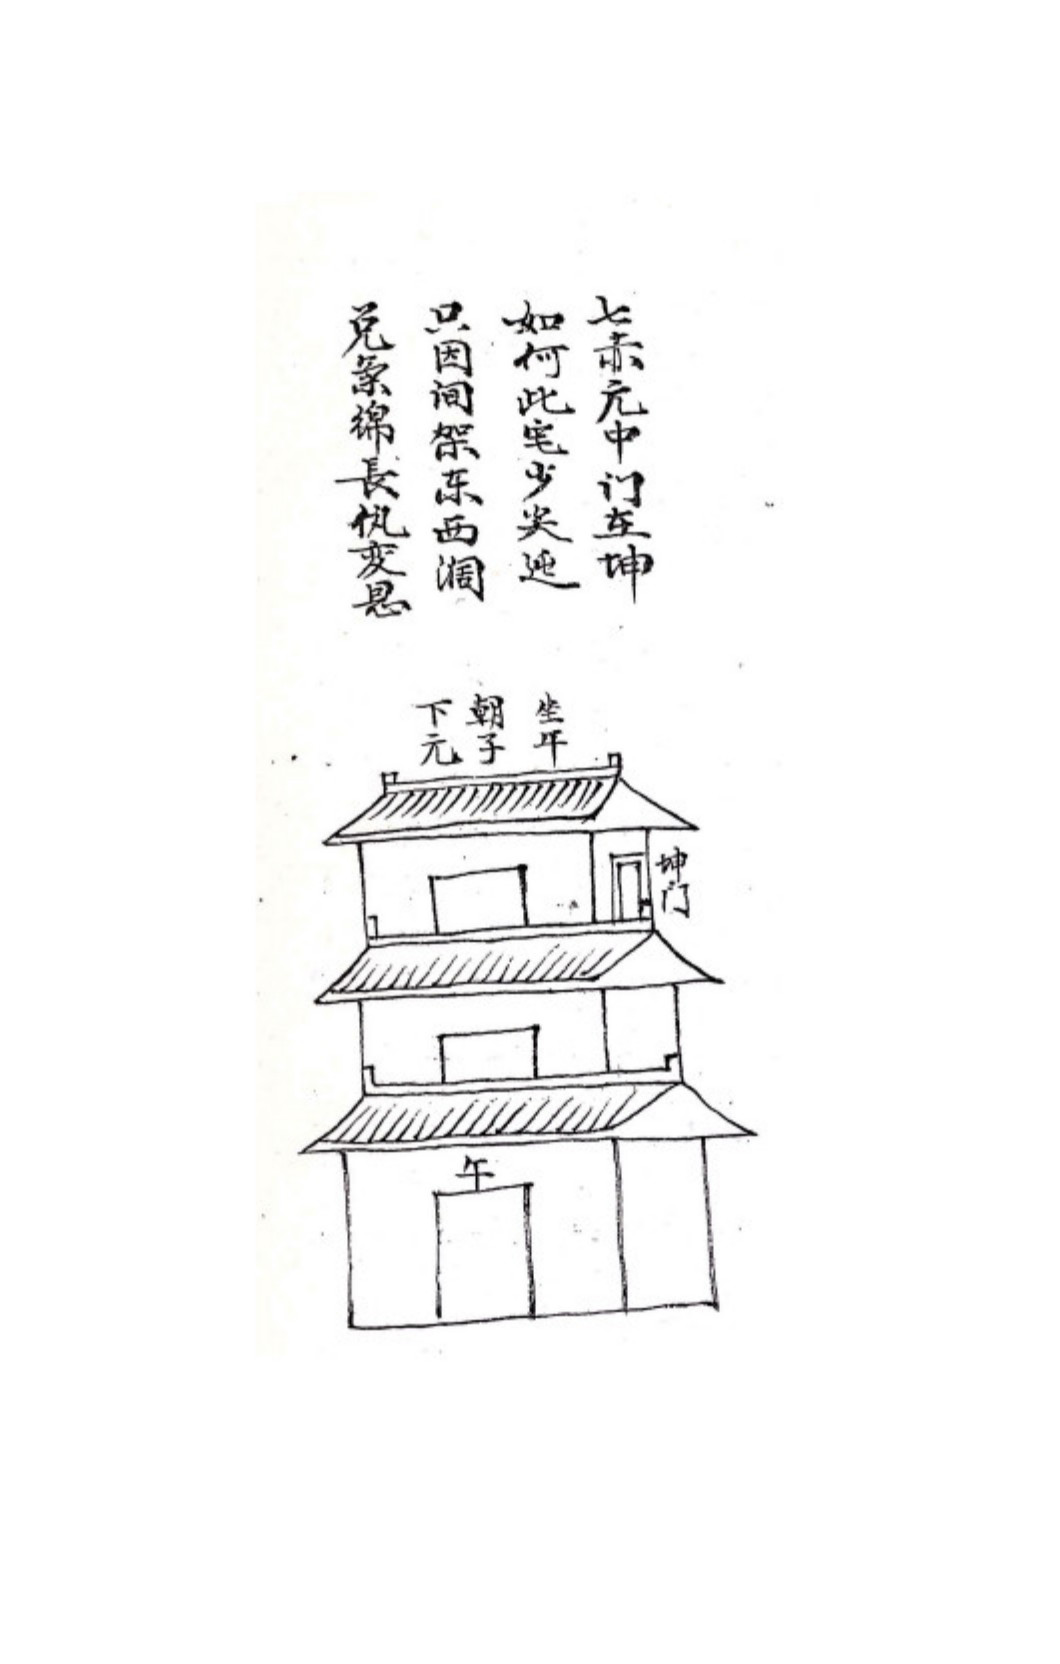 七赤元中门在坤
如何此宅少灾迍
只因间架东西濶
兑气绵長仇变恩
坐午
朝子
下元
坤门
午